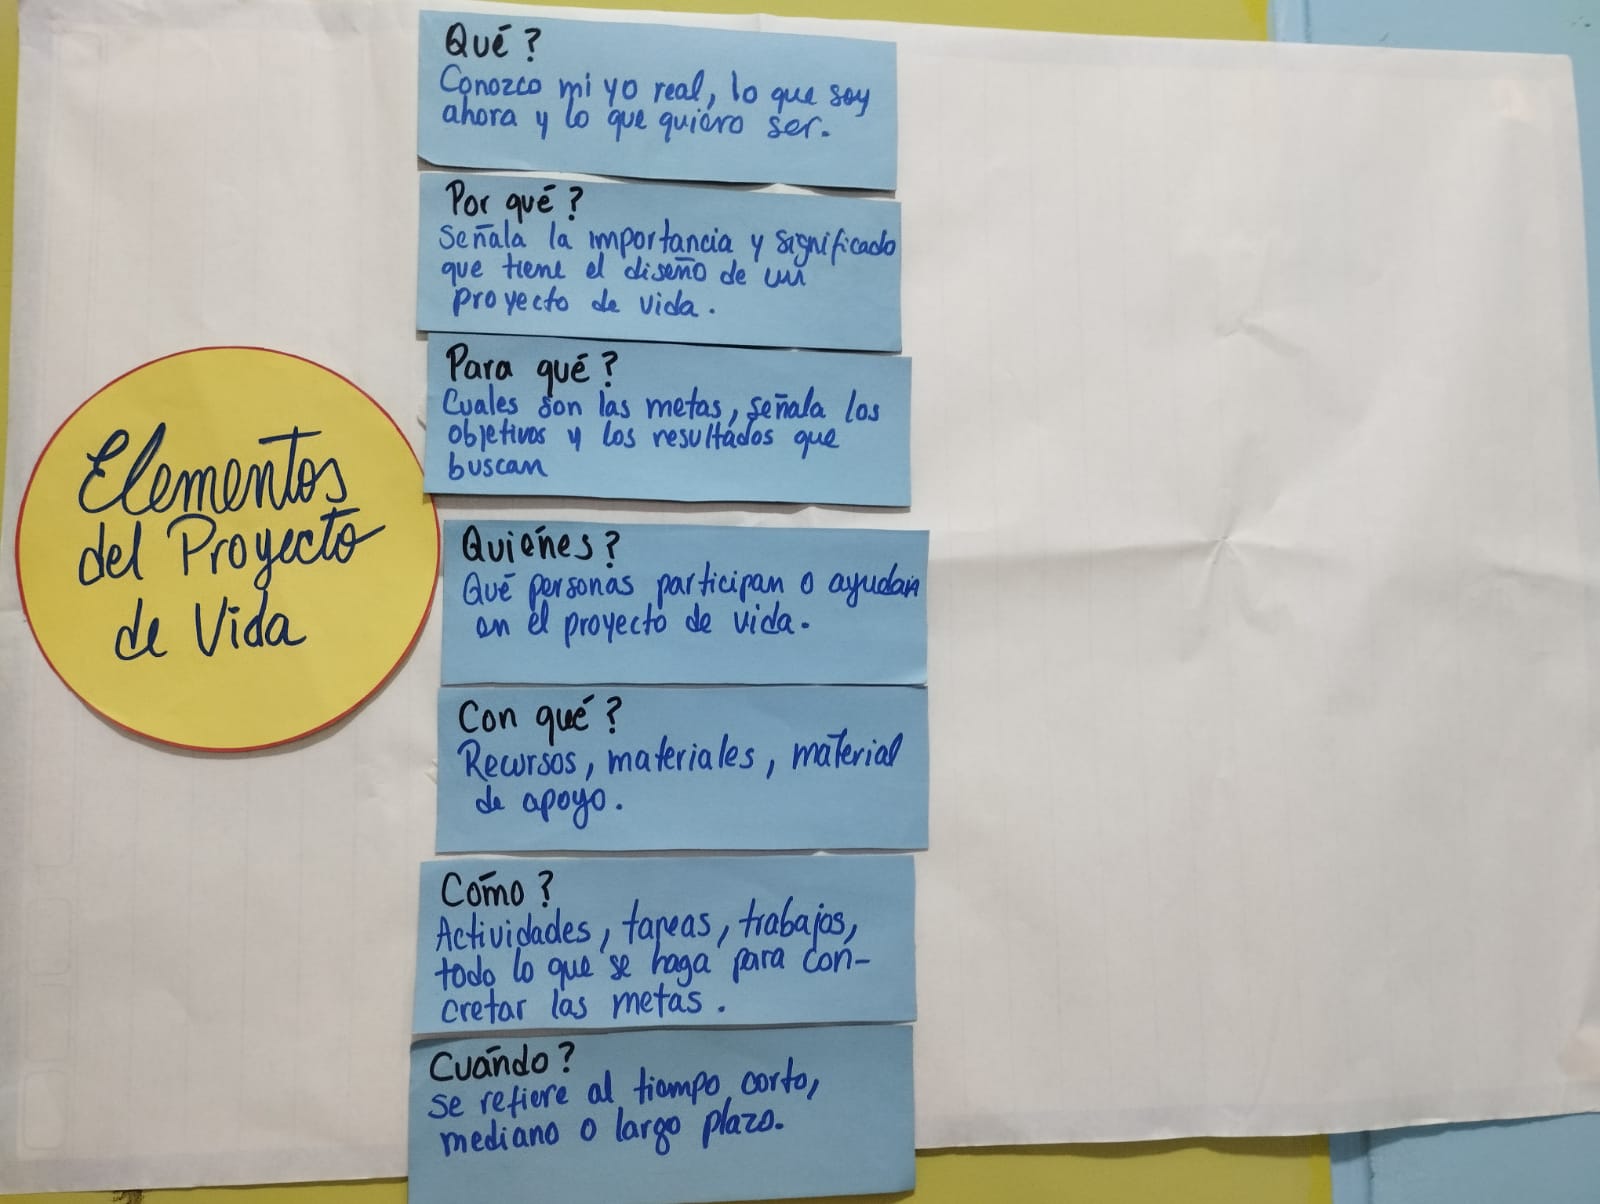 Elementos
del Proyecto
de Vida
Qué?
Conozco mi yo real, lo que soy
ahora y lo que quiero ser.
Por qué?
Señala la importancia y significado
que tiene el diseño de un
proyecto de vida.
Para qué?
Cuales son las metas, señala los
objetivos y los resultados que
buscan
Quiénes?
Qué personas participan o ayudan
en el proyecto de vida.
Con qué?
Recursos, materiales, material
de apoyo.
Cómo?
Actividades, tareas, trabajos,
todo lo que se haga para con-
cretar las metas.
Cuándo?
se refiere al tiempo corto,
mediano o largo plazo.